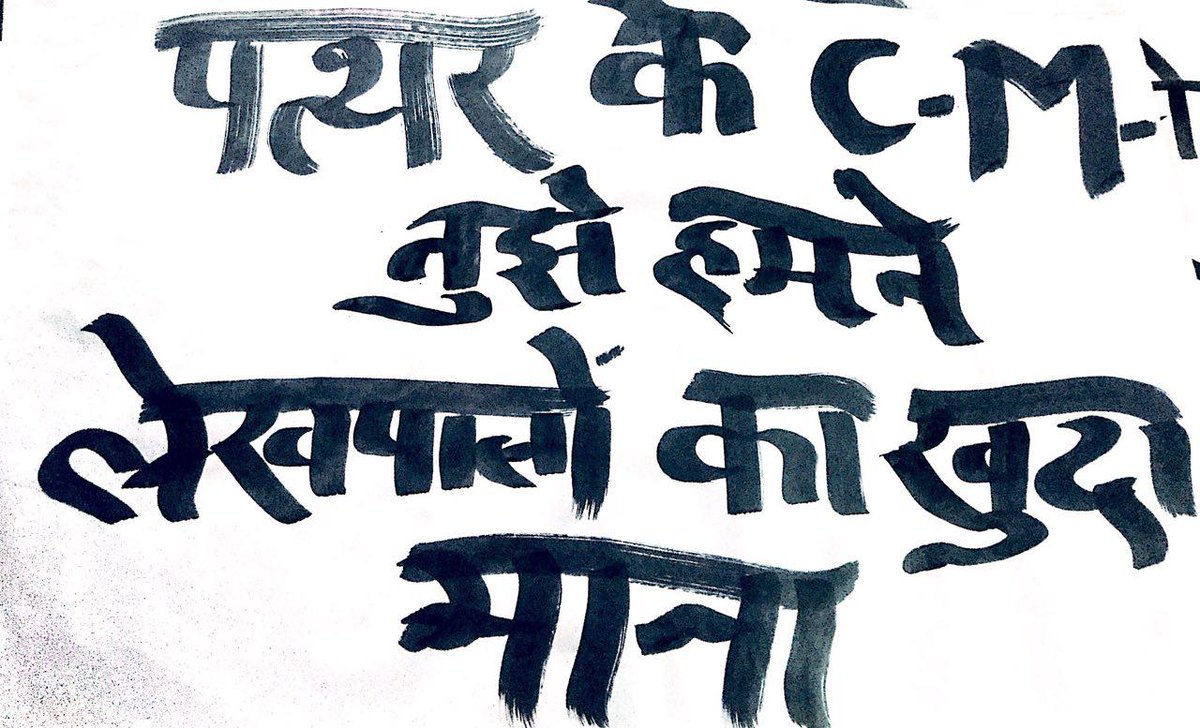 पत्थर के C-M-
तुझे हमने
लेखपालों का खुदा
माना